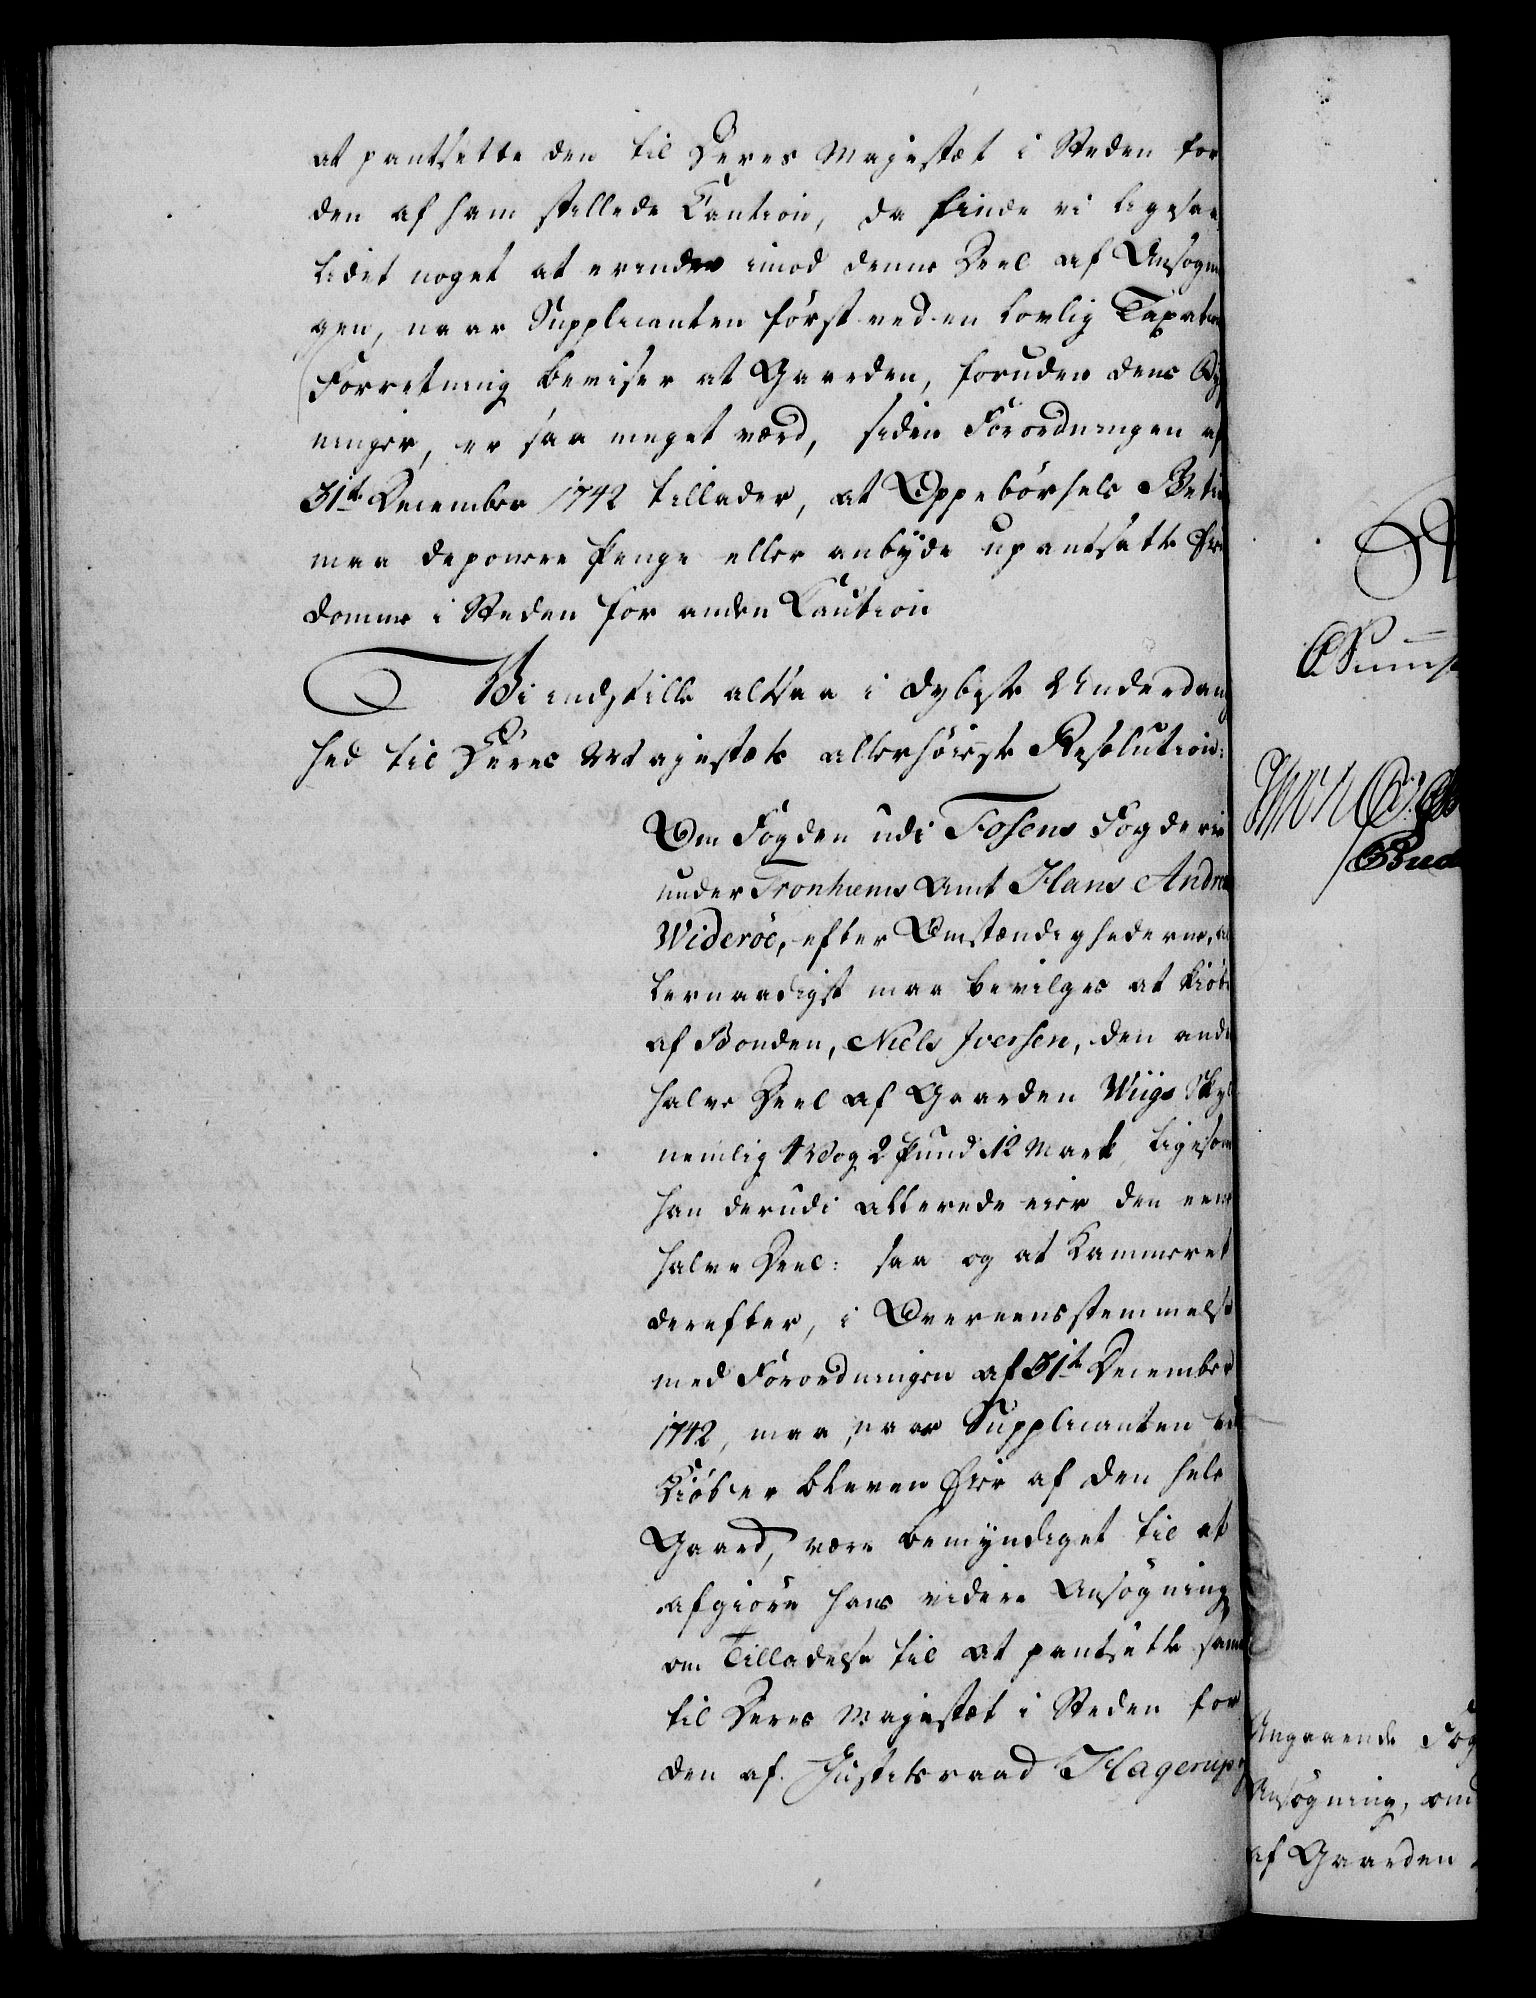 at pantsette den til Deres Majestæt i Steden for
den af ham stillede Caution, da finde vi ligesaa
lidet noget at erindre imod denne Deel af Ansøgnin
gen, naar Supplicanten først ved en lovlig Taxations
Forretning beviser at Gaarden, foruden dens Byg
ninger, er saa meget værd, siden Forordningen af
31te December 1742 tillader, at Oppebørsels Betien
maa deponere Penge eller anbyde upantsatte Eien
domme i Steden for anden Caution
Vi indstille altsaa i dybeste Underdanig
hed til Deres Majestæts allerhøieste Resolution:
Om Fogden udi Fosens Fogderie
under Tronhiems Amt Hans Andreas
Widerøe, efter Omstændighederne, al
lernaadigst maa bevilges at kiøbe
af Bonden, Niels Iversen, den anden
halve Deel af Gaarden Wiigs Skyld
nemlig 1 Vog 2 Pund 12 Mark, ligesom
han derudi allerede eier den eene
halve Deel: saa og at Kammeret
derefter, i Overeensstemmelse
med Forordningen af 31te December
1742, maa, naar Supplicanten ved
Kiøb er bleven Eier af den hele
Gaard, være bemyndiget til at
afgiøre hans videre Ansøgning
om Tilladelse til at pantsette samme
til Deres Majestæt i Steden for
den af Justitsraad Hagerup
Angaaende Fog
Ansøgning, om
af Gaarden